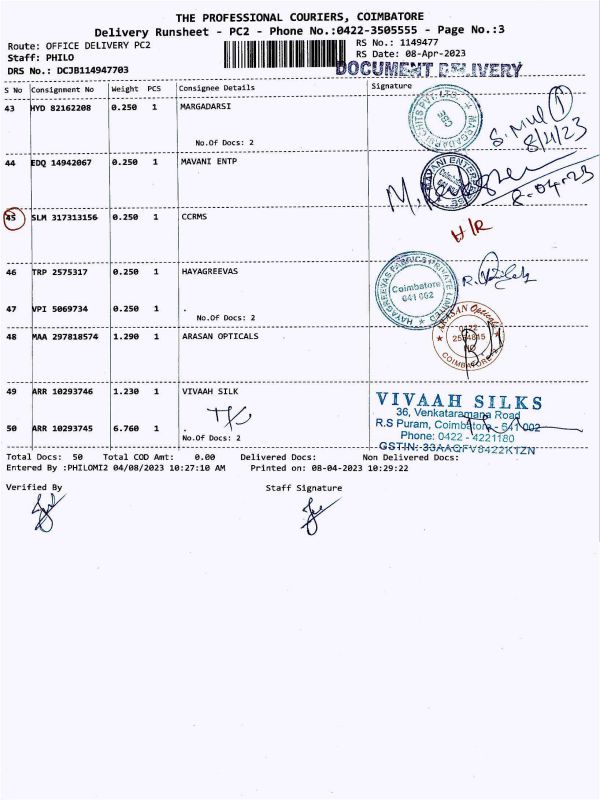 THE PROFESSIONAL COURIERS, COIMBATORE
Delivery Runsheet - PC2 - Phone No.:0422-3505555 - Page No.:3
Route: OFFICE DELIVERY PC2
RS No.: 1149477
Staff: PHILO
RS Date: 08-Apr-2023
DRS No.: DCJB114947703
DOCUMENT DELIVERY
S No Consignment No Weight PCS Consignee Details Signature
43 HYD 82162208 0.250 1 MARGADARSI
No.Of Docs: 2
8/4/23
44 EDQ 14942067 0.250 1 MAVANI ENTP
8.04.23
45 SLM 317313156 0.250 1 CCRMS
H/R
46 TRP 2575317 0.250 1 HAYAGREEVAS
HAYAGREEVAS FABRICS PRIVATE LIMITED
Coimbatore
641 002
47 VPI 5069734 0.250 1 .
48 MAA 297818574 1.290 1 ARASAN OPTICALS
ARASAN Opticals
0422
COIMBATORE
49 ARR 10293746 1.230 1 VIVAAH SILK
50 ARR 10293745 6.760 1 .
No.Of Docs: 2
VIVAAH SILKS
36, Venkataramana Road
R.S Puram, Coimbatore - 641 002
Phone: 0422 - 4221180
GSTIN: 33AAQFV8422K1ZN
Total Docs: 50 Total COD Amt: 0.00 Delivered Docs: Non Delivered Docs:
Entered By :PHILOMI2 04/08/2023 10:27:10 AM Printed on: 08-04-2023 10:29:22
Verified By Staff Signature